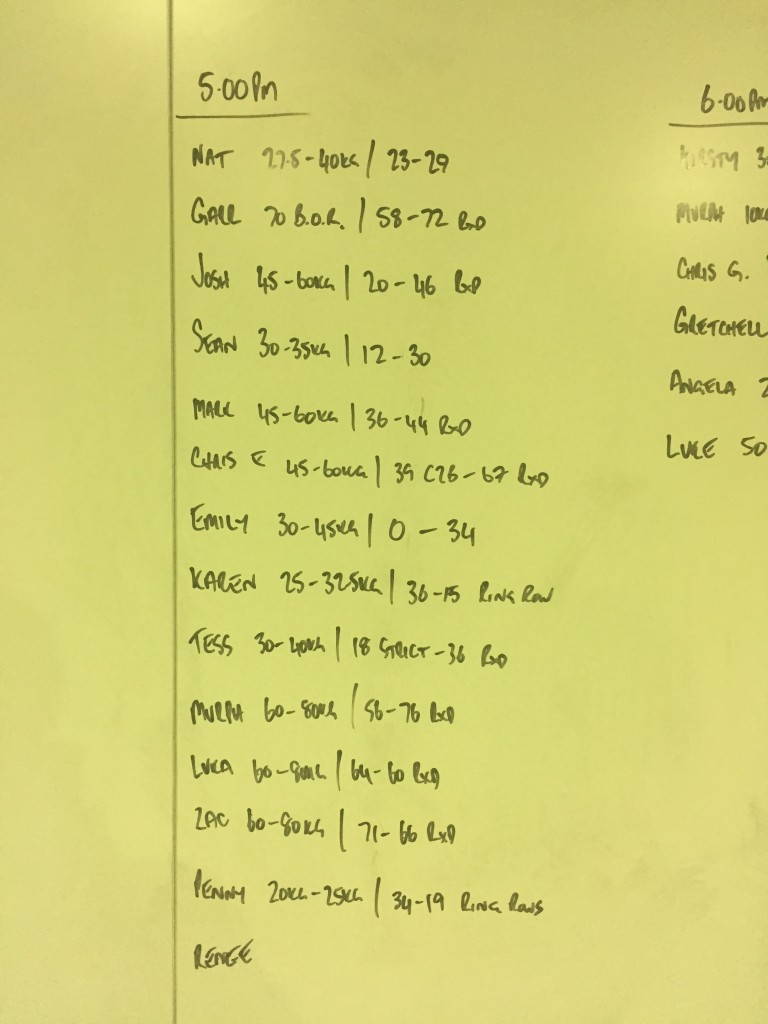 5.00PM
NAT 27.5-40KG / 23-29
GARR 70 B.O.R. / 58-72 RxD
JOSH 45-60KG / 20-46 RxD
SEAN 30-35KG / 12-30
MARK 45-60KG / 36-44 RxD
CHRIS E 45-60KG / 39 C2B-67 RxD
EMILY 30-45KG / 0-34
KAREN 25-32.5KG / 36-15 RING ROW
TESS 30-40KG / 18 STRICT-36 RxD
MURPH 60-80KG / 56-76 RxD
LUKA 60-80KG / 64-60 RxD
ZAC 60-80KG / 71-66 RxD
PENNY 20KG-25KG / 34-19 RING ROWS
RENGE
6.00PM
KIRSTY 3
MURPH 10KG
CHRIS G.
GRETCHELL
ANGELA 2
LUKE 50